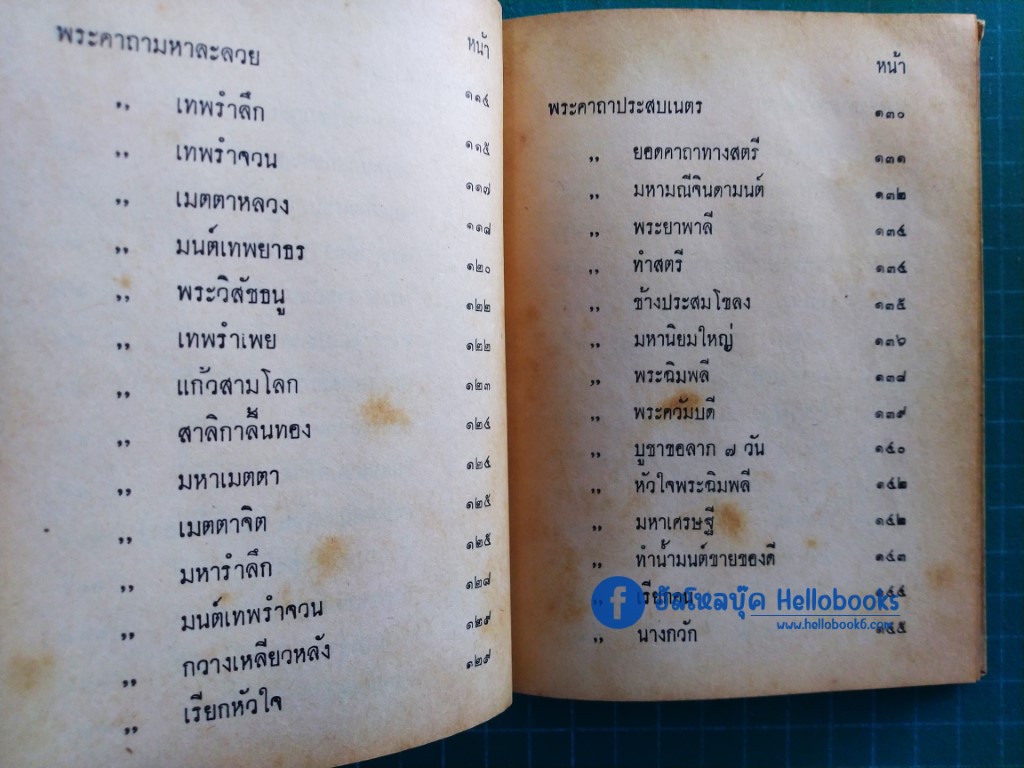 หน้า
พระคาถามหาละลวย ๑๑๔
,, เทพรำลึก ๑๑๕
,, เทพรำจวน ๑๑๗
,, เมตตาหลวง ๑๑๘
,, มนต์เทพยาธร ๑๒๐
,, พระวิสัชธนู ๑๒๒
,, เทพรำเพย ๑๒๒
,, แก้วสามโลก ๑๒๓
,, สาลิกาลิ้นทอง ๑๒๔
,, มหาเมตตา ๑๒๔
,, เมตตาจิต ๑๒๕
,, มหารำลึก ๑๒๕
,, มนต์เทพรำจวน ๑๒๘
,, กวางเหลียวหลัง ๑๒๙
,, เรียกหัวใจ ๑๒๙
หน้า
พระคาถาประสบเนตร ๑๓๐
,, ยอดคาถาทางสตรี ๑๓๑
,, มหามณีจินดามนต์ ๑๓๒
,, พระยาพาลี ๑๓๔
,, ทำสตรี ๑๓๔
,, ช้างประสมโขลง ๑๓๕
,, มหานิยมใหญ่ ๑๓๖
,, พระฉิมพลี ๑๓๘
,, พระควัมบดี ๑๓๙
,, บูชาขอลาภ ๗ วัน ๑๔๐
,, หัวใจพระฉิมพลี ๑๔๒
,, มหาเศรษฐี ๑๔๒
,, ทำน้ำมนต์ขายของดี ๑๔๓
,, เรียกคน ๑๔๔
,, นางกวัก ๑๔๕
f ฮัลโหลบุ๊ค Hellobooks
www.hellobook6.com